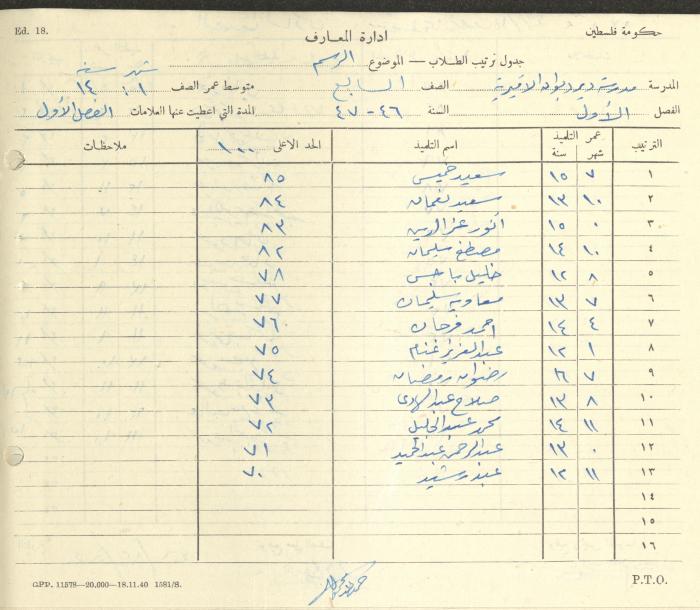 Ed. 18.
حكومة فلسطين
ادارة المعارف
جدول ترتيب الطلاب — الموضوع الرسم
المدرسة مدرسة دير ديوان الاميرية الصف السابع متوسط عمر الصف شهر ١ سنة ١٤
الفصل الأول السنة ٤٦ - ٤٧ المدة التي اعطيت عنها العلامات الفصل الأول
الترتيب عمر التلميذ شهر سنة اسم التلميذ الحد الاعلى ١٠٠ ملاحظات
١ ٧ ١٥ سعيد خميس ٨٥
٢ ١٠ ١٣ سعيد نعمان ٨٤
٣ ٠ ١٥ أنور عز الدين ٨٣
٤ ١٠ ١٤ مصطفى سليمان ٨٢
٥ ٨ ١٢ خليل باجس ٧٨
٦ ٧ ١٣ معاوية سليمان ٧٧
٧ ٤ ١٤ احمد فرحان ٧٦
٨ ١ ١٢ عبد العزيز غنام ٧٥
٩ ٧ ١٦ رضوان رمضان ٧٤
١٠ ٨ ١٣ صلاح عبد الهادي ٧٣
١١ ١١ ١٤ محمد عبد الجليل ٧٢
١٢ ٠ ١٣ عبد الرحمن عبد الحميد ٧١
١٣ ١١ ١٢ عبد رشيد ٧٠
١٤
١٥
١٦
GPD. 11578—20.000—18.11.40 1581/S.
P.T.O.